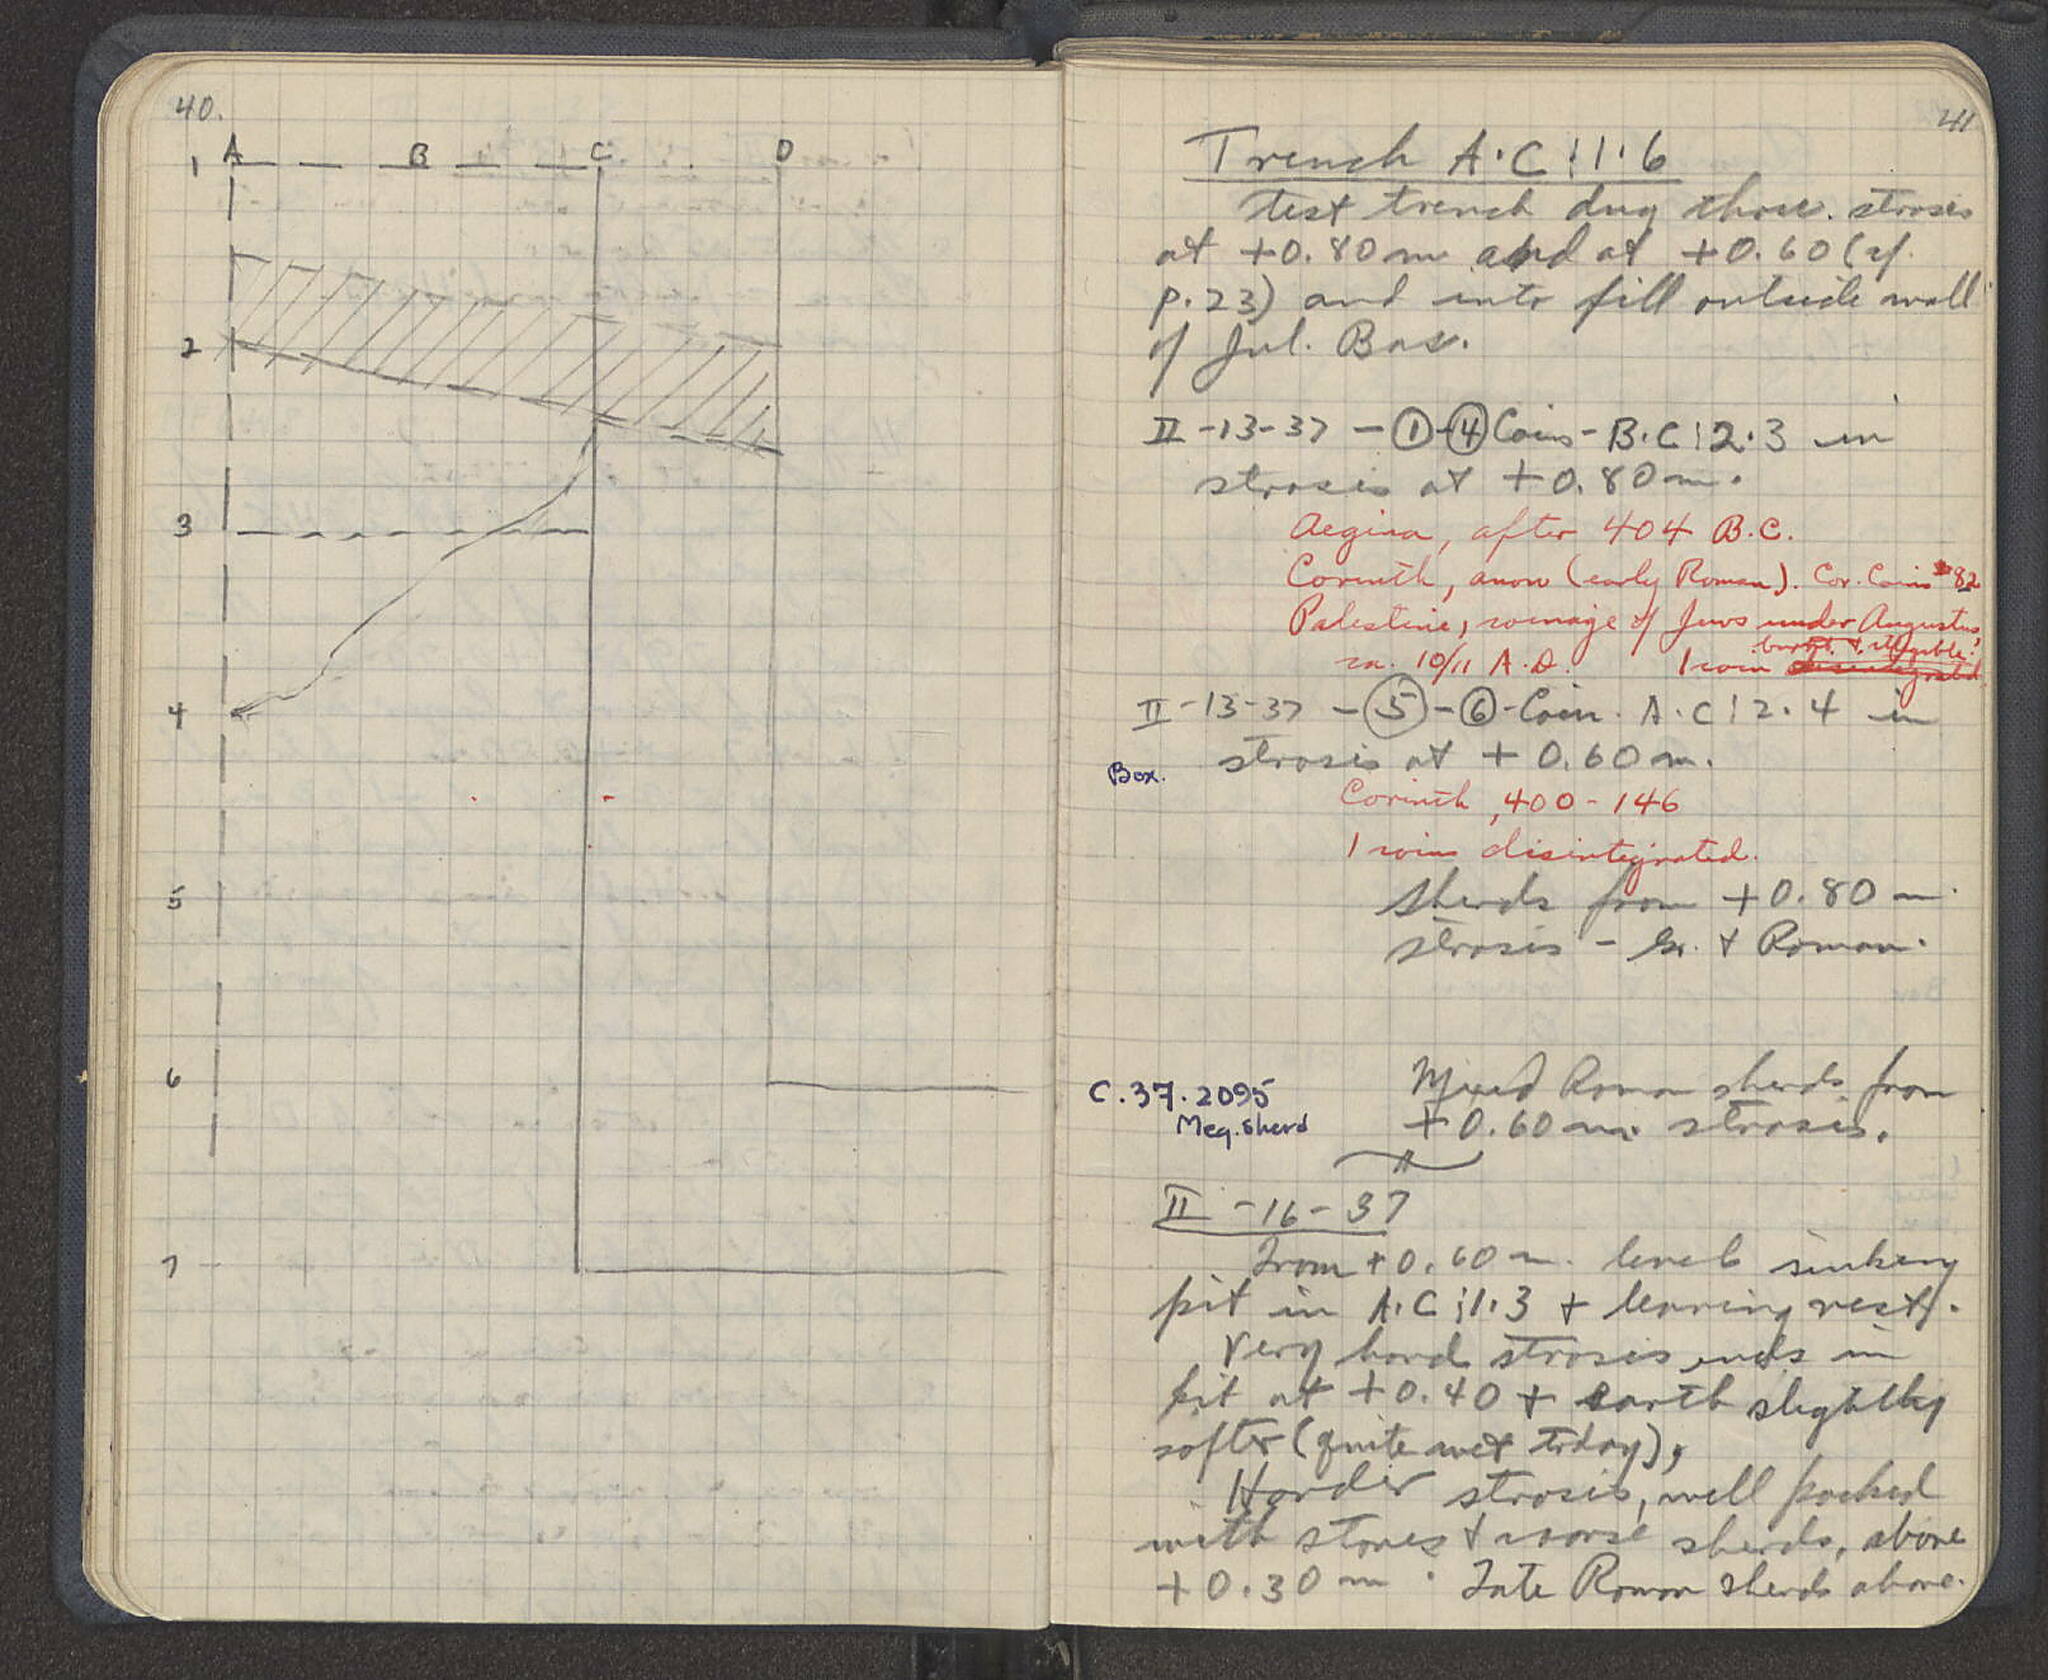 40.
A B C D
1
2
3
4
5
6
7
41
Trench A·C:1·6
test trench dug thru. stroses
at +0.80 m and at +0.60 (cf.
p. 23) and into fill outside wall
of Jul. Bas.
II-13-37 - ①-④ Coins - B·C:2·3 in
strosis at +0.80 m.
Aegina, after 404 B.C.
Corinth, anon (early Roman). Cor. Coins #82
Palestine, coinage of Jews under Augustus,
burnt & illegible.
ca. 10/11 A.D. 1 coin disintegrated
II-13-37 - ⑤-⑥ - Coin. A·C:2·4 in
strosis at +0.60 m.
Box.
Corinth, 400-146
1 coin disintegrated.
Sherds from +0.80 m
strosis - Gr. & Roman.
C.37.2095
Meg. Sherd
Mixed Roman sherds from
+0.60 m. strosis.
II-16-37
From +0.60 m. level sinking
pit in A·C:1·3 + leaving rest.
Very hard strosis ends in
pit at +0.40 + earth slightly
softer (quite wet today),
Harder strosis, well packed
with stones & coarse sherds, above
+0.30 m. Late Roman sherds above.